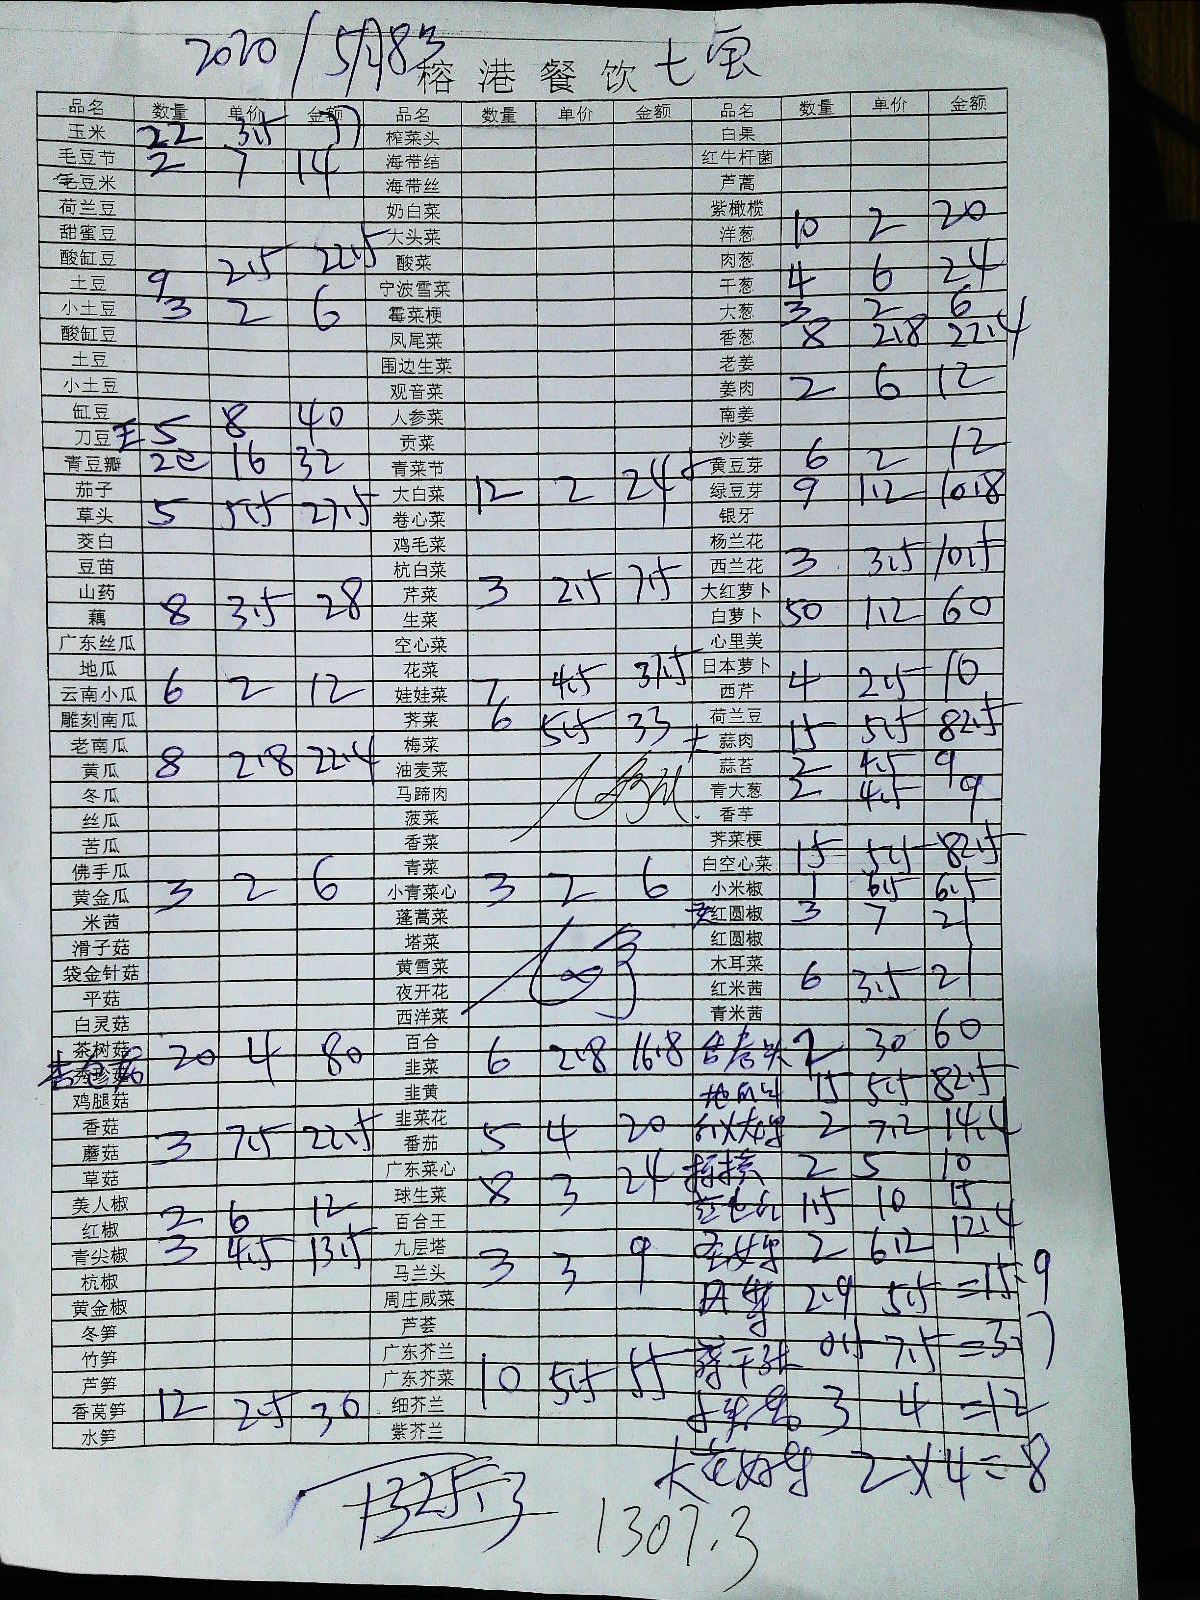 2020/5月8号
榕港餐饮 七宝
品名 数量 单价 金额 品名 数量 单价 金额 品名 数量 单价 金额
玉米 22 3.5 77 榨菜头 白果
毛豆节 2 7 14 海带结 红牛杆菌
毛豆米 海带丝 芦蒿
荷兰豆 奶白菜 紫橄榄
甜蜜豆 大头菜 洋葱 10 2 20
酸缸豆 酸菜 肉葱
土豆 9 2.5 22.5 宁波雪菜 干葱 4 6 24
小土豆 3 2 6 霉菜梗 大葱 3 2 6
酸缸豆 凤尾菜 香葱 8 2.8 22.4
土豆 围边生菜 老姜
小土豆 观音菜 姜肉 2 6 12
缸豆 人参菜 南姜
刀豆 5 8 40 贡菜 沙姜
青豆瓣 2 16 32 青菜节 黄豆芽 6 2 12
茄子 大白菜 12 2 24 绿豆芽 9 1.2 10.8
草头 5 5.5 27.5 卷心菜 银牙
茭白 鸡毛菜 杨兰花
豆苗 杭白菜 西兰花 3 3.5 10.5
山药 芹菜 3 2.5 7.5 大红萝卜
藕 8 3.5 28 生菜 白萝卜 50 1.2 60
广东丝瓜 空心菜 心里美
地瓜 花菜 日本萝卜
云南小瓜 6 2 12 娃娃菜 7 4.5 31.5 西芹 4 2.5 10
雕刻南瓜 荠菜 6 5.5 33 荷兰豆
老南瓜 梅菜 蒜肉 15 5.5 82.5
黄瓜 8 2.8 22.4 油麦菜 蒜苔 2 4.5 9
冬瓜 马蹄肉 青大葱 2 4.5 9
丝瓜 菠菜 香芋
苦瓜 香菜 荠菜梗
佛手瓜 青菜 白空心菜 15 5.5 82.5
黄金瓜 3 2 6 小青菜心 3 2 6 小米椒 1 6.5 6.5
米茜 蓬蒿菜 红圆椒 3 7 21
滑子菇 塔菜 红圆椒
袋金针菇 黄雪菜 木耳菜
平菇 夜开花 红米茜 6 3.5 21
白灵菇 西洋菜 青米茜
茶树菇 20 4 80 百合 2 30 60
秀珍菇 韭菜 6 2.8 16.8
鸡腿菇 韭黄 15 5.5 82.5
香菇 韭菜花 2 7.2 14.4
蘑菇 3 7.5 22.5 番茄 5 4 20
草菇 广东菜心 2 5 10
美人椒 球生菜 8 3 24 1.5 10 15
红椒 2 6 12 百合王
青尖椒 3 4.5 13.5 九层塔 2 6.2 12.4
杭椒 马兰头 3 3 9
黄金椒 周庄咸菜 2.9 5.5 =15.9
冬笋 芦荟
竹笋 广东芥兰 0.5 7.5 =3.7
芦笋 广东芥菜 10 5.5 55
香莴笋 12 2.5 30 细芥兰 3 4 =12
水笋 紫芥兰
2×4=8
1325.3
1307.3